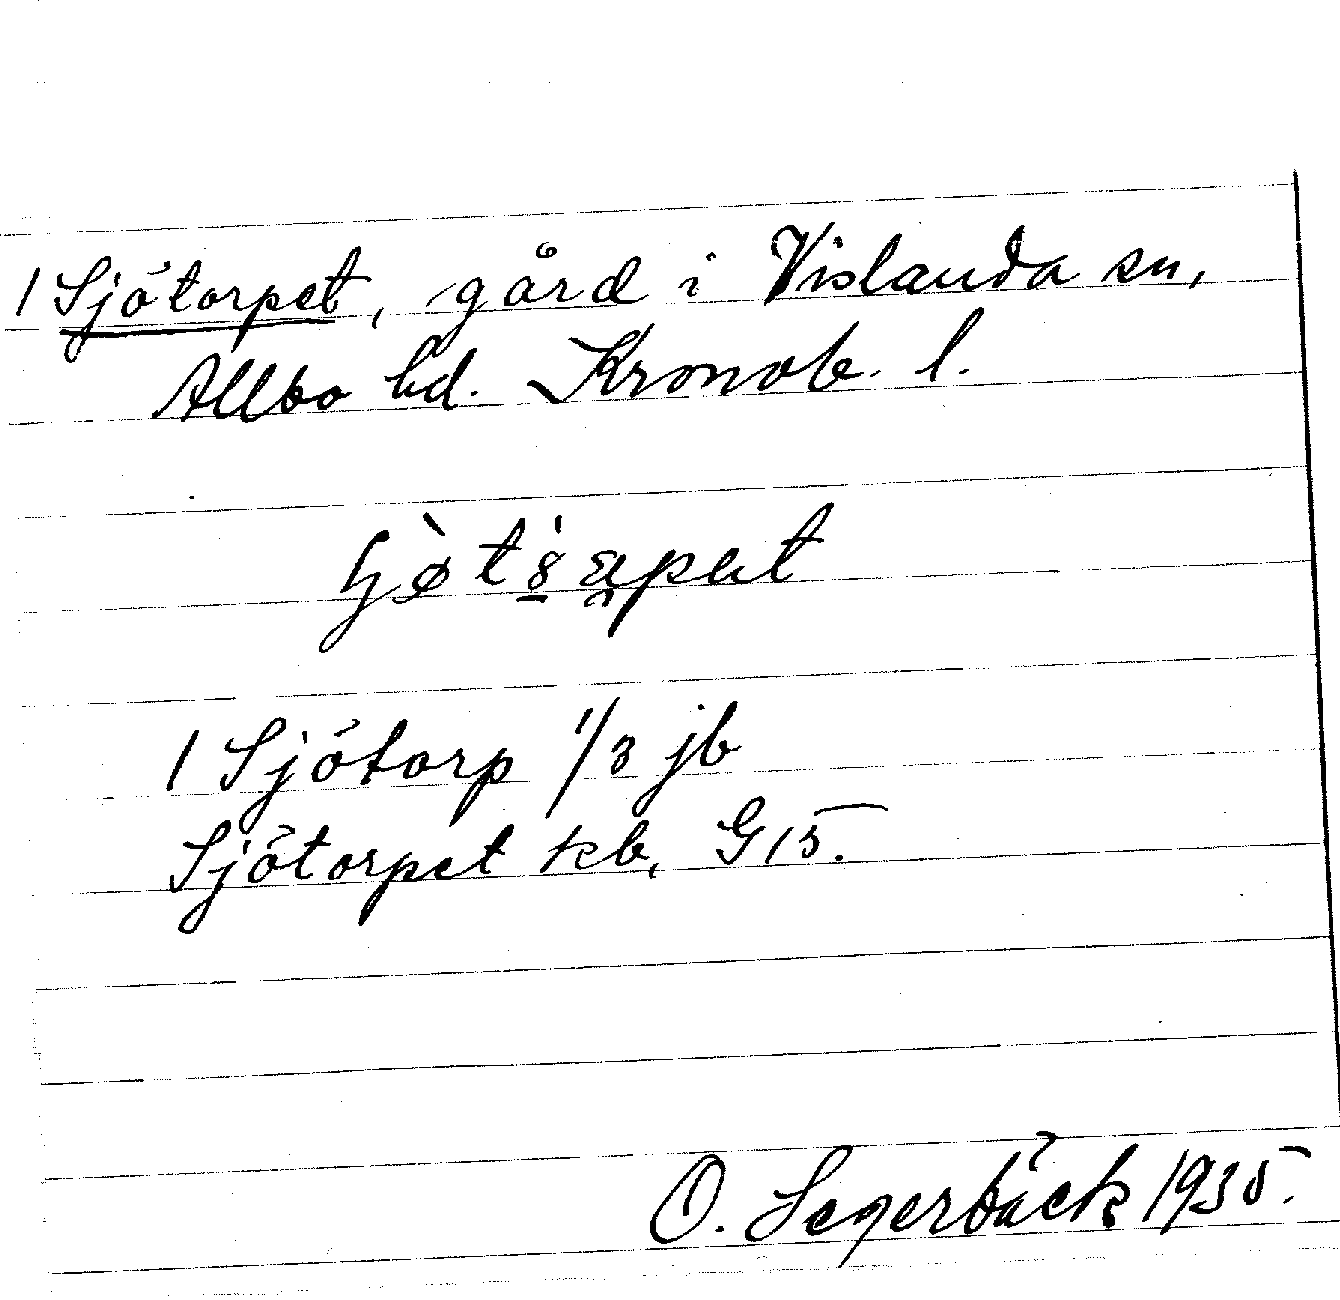 1 Sjötorpet, gård i Vislanda sn,
Allbo hd. Kronob. l.
1 Sjötorp 1/3 jb
Sjötorpet kb, G15.
O. Segerbäck 1935.